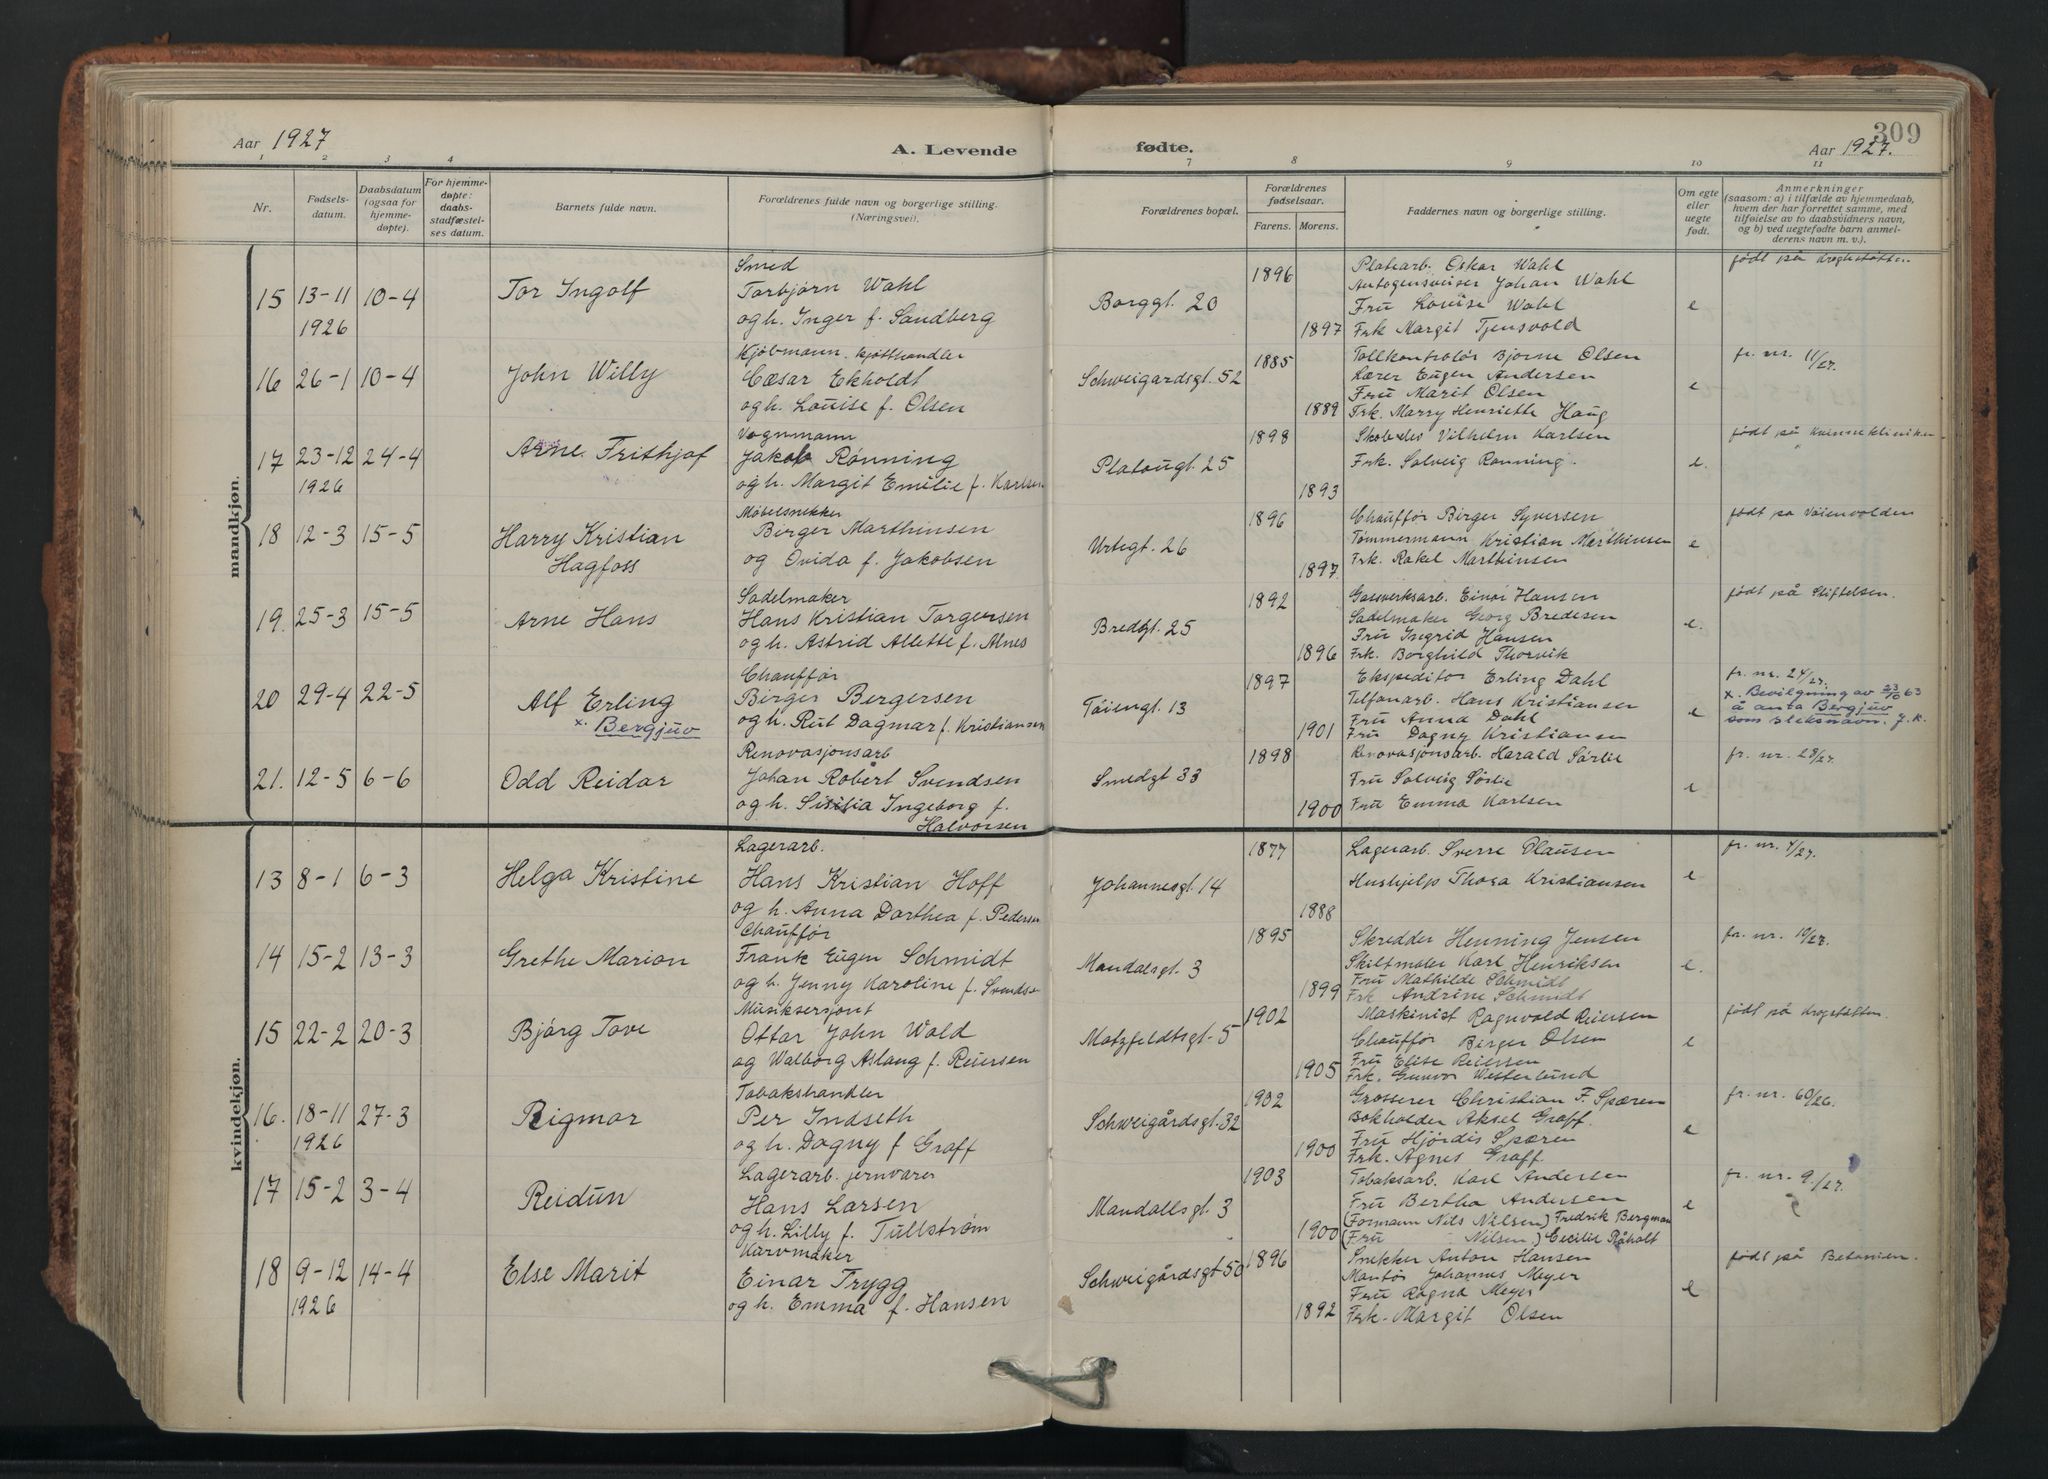 Aar 1927
A. Levende
fødte.
309
Aar 1927.
1 2 3 4 7 8 9 10 11
Nr.
Fødsels-
datum.
Daabsdatum
(ogsaa for
hjemme-
døpte).
For hjemme-
døpte:
daabs-
stadfæstel-
ses datum.
Barnets fulde navn.
Forældrenes fulde navn og borgerlige stilling.
(Næringsvei).
Forældrenes bopæl.
Forældrenes
fødselsaar.
Farens. Morens.
Faddernes navn og borgerlige stilling.
Om egte
eller
uegte
født.
Anmerkninger
(saasom: a) i tilfælde av hjemmedaab,
hvem der har forrettet samme, med
tilføielse av to daabsvidners navn,
og b) ved uegtefødte barn anmel-
derens navn m. v.).
mandkjøn.
15 13-11 10-4
1926
Tor Ingolf
Smed
Torbjørn Wahl
og h. Inger f. Sandberg
Borggt. 20
1896
1897
Platearb. Oskar Wahl
Autogensveiser Johan Wahl
Fru Louise Wahl
Frk Margit Tjensvold
e
født på
16 26-1 10-4
John Willy
Kjøbmann. kjøtthandler
Cæsar Ekholdt
og h. Louise f. Olsen
Schweigardsgt. 52
1885
1889
Tollkontrolør Bjarne Olsen
Lærer Eugen Andersen
Fru Marit Olsen
Frk. Marry Henriette Haug
e
fr. nr. 11/27.
17 23-12 24-4
1926
Arne Frithjof
Vognmann
Jakob Rønning
og h. Margit Emilie f. Karlsen
Platougt. 25
1898
1893
Vilhelm Karlsen
Frk. Solveig Rønning.
e.
født på Kvinneklinikken
18 12-3 15-5
Harry Kristian
Hagfoss
Møbelsnekker
Birger Marthinsen
og Ovida f. Jakobsen
Urtegt. 26
1896
1897.
Chauffør Birger Syversen
Tømmermann Kristian Marthinsen
Frk. Rakel Marthinsen
e
født på Vøienvolden
19. 25-3 15-5
Arne Hans
Sadelmaker
Hans Kristian Torgersen
og h. Astrid Alette f. Alnes
Bredgt. 25
1892
1896
Gassverksarb. Einar Hansen
Sadelmaker Georg Bredesen
Fru Ingrid Hansen
Frk. Borghild Thorvik
e.
født på Stiftelsen.
20 29-4 22-5
Alf Erling
x. Bergjuv
Chauffør
Birger Bergersen
og h. Rut Dagmar f. Kristiansen
Tøiengt. 13
1897
1901
Ekspeditør Erling Dahl
Telfonarb. Hans Kristiansen
Fru Anna Dahl
Fru Dagny Kristiansen
e
fr. nr. 24/27.
x. Bevilgning av 23/10 63
å anta Bergjuv
som slektsnavn. J.K.
21. 12-5 6-6
Odd Reidar
Renovasjonsarb
Johan Robert Svendsen
og h. Sisilia Ingeborg f.
Halvorsen
Smedgt 33
1898
1900
Renovasjonsarb. Harald Sørlie
Fru Solveig Sørlie
Fru Emma Karlsen
e
fr. nr. 28/27.
kvindekjøn.
13 8-1 6-3
Helga Kristine
Lagerarb.
Hans Kristian Hoff
og h. Anna Dorthea f. Pedersen
Johannesgt. 14
1877
1888
Lagerarb. Sverre Olausen
Hushjelp Thora Kristiansen
e
fr. nr. 4/27.
14 15-2 13-3
Grethe Marion
Chauffør
Frank Eugen Schmidt
og h. Jenny Karoline f. Svendsen
Mandalsgt. 3
1895
1899
Skredder Henning Jensen
Skiltmaler Karl Henriksen
Fru Mathilde Schmidt
Frk Andrine Schmidt
e.
fr. nr. 10/27.
15 22-2 20-3
Bjørg Tove
Musiksersjant
Ottar John Wold
og Walborg Aslaug f. Reiersen
Motzfeldtsgt. 5
1902
1905
Maskinist Ragnvald Reiersen
Chauffør Birger Olsen
Fru Elise Reiersen
Frk. Gunvor Westerlund
e
født på
16. 18-11 27-3
1926
Rigmor
Tobakshandler
Per Indseth
og h. Dagny f Graff
Schweigårdsgt. 32
1902
1900
Grosserer Christian F. Spæren
Bokholder Aksel Graff.
Fru Hjørdis Spæren
Frk. Agnes Graff.
e
fr. nr. 60/26.
17 15-2 3-4
Reidun
Lagerarb. jernvarer
Hans Larsen
og h. Lilly f. Tullstrøm
Mandallsgt. 3
1903
1900
Tobaksarb. Karl Andersen
Fru Bertha Andersen
(Formann Nils Nilsen) Fredrik Bergman
(Fru Nilsen.) Cecilie Råholt
e
fr. nr. 9/27.
18 9-12 14-4
1926
Else Marit
Kurvmaker
Einar Trygg
og h. Emma f. Hansen
Schweigårdsgt 50
1896
1892
Snekker Anton Hansen
Montør Johannes Meyer
Fru Ragna Meyer
Frk. Margit Olsen
e
født på Betanien.